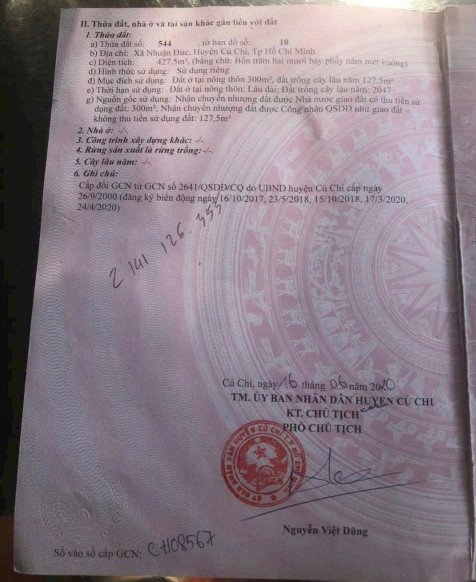 II. Thửa đất, nhà ở và tài sản khác gắn liền với đất
1. Thửa đất:
a) Thửa đất số: 544 , tờ bản đồ số: 10
b) Địa chỉ: Xã Nhuận Đức, Huyện Củ Chi, Tp Hồ Chí Minh
c) Diện tích: 427.5m², (bằng chữ: Bốn trăm hai mươi bảy phẩy năm mét vuông)
d) Hình thức sử dụng: Sử dụng riêng
đ) Mục đích sử dụng: Đất ở tại nông thôn 300m², đất trồng cây lâu năm 127,5m²
e) Thời hạn sử dụng: Đất ở tại nông thôn: Lâu dài; Đất trồng cây lâu năm: 2047
g) Nguồn gốc sử dụng: Nhận chuyển nhượng đất được Nhà nước giao đất có thu tiền sử
dụng đất: 300m²; Nhận chuyển nhượng đất được Công nhận QSDĐ như giao đất
không thu tiền sử dụng đất: 127,5m²
2. Nhà ở: -/-
3. Công trình xây dựng khác: -/-
4. Rừng sản xuất là rừng trồng: -/-
5. Cây lâu năm: -/-
6. Ghi chú:
Cấp đổi GCN từ GCN số 2641/QSDĐ/CQ do UBND huyện Củ Chi cấp ngày
26/9/2000 (đăng ký biến động ngày 16/10/2017, 23/5/2018, 15/10/2018, 17/3/2020,
24/4/2020)
2 141 126.353
Củ Chi, ngày 16 tháng 06 năm 2020
TM. ỦY BAN NHÂN DÂN HUYỆN CỦ CHI
KT. CHỦ TỊCH
PHÓ CHỦ TỊCH
Nguyễn Việt Dũng
Số vào sổ cấp GCN: CH08567